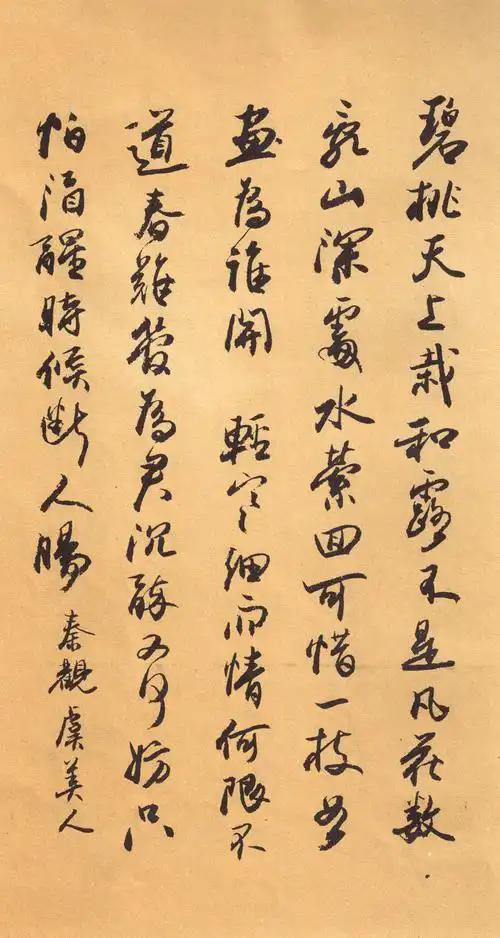 碧桃天上栽和露不是凡花數
亂山深處水縈回可惜一枝如
畫為誰開 輕寒細雨情何限不
道春難管為君沉醉又何妨只
怕酒醒時候斷人腸 秦觀虞美人